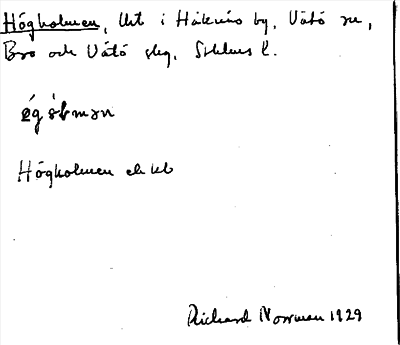 Högholmen, Utt i Håknäs by, Vätö sn,
Bro och Vätö skg, Sthlms l.
Högholmen ek kb
Richard Norrman 1929